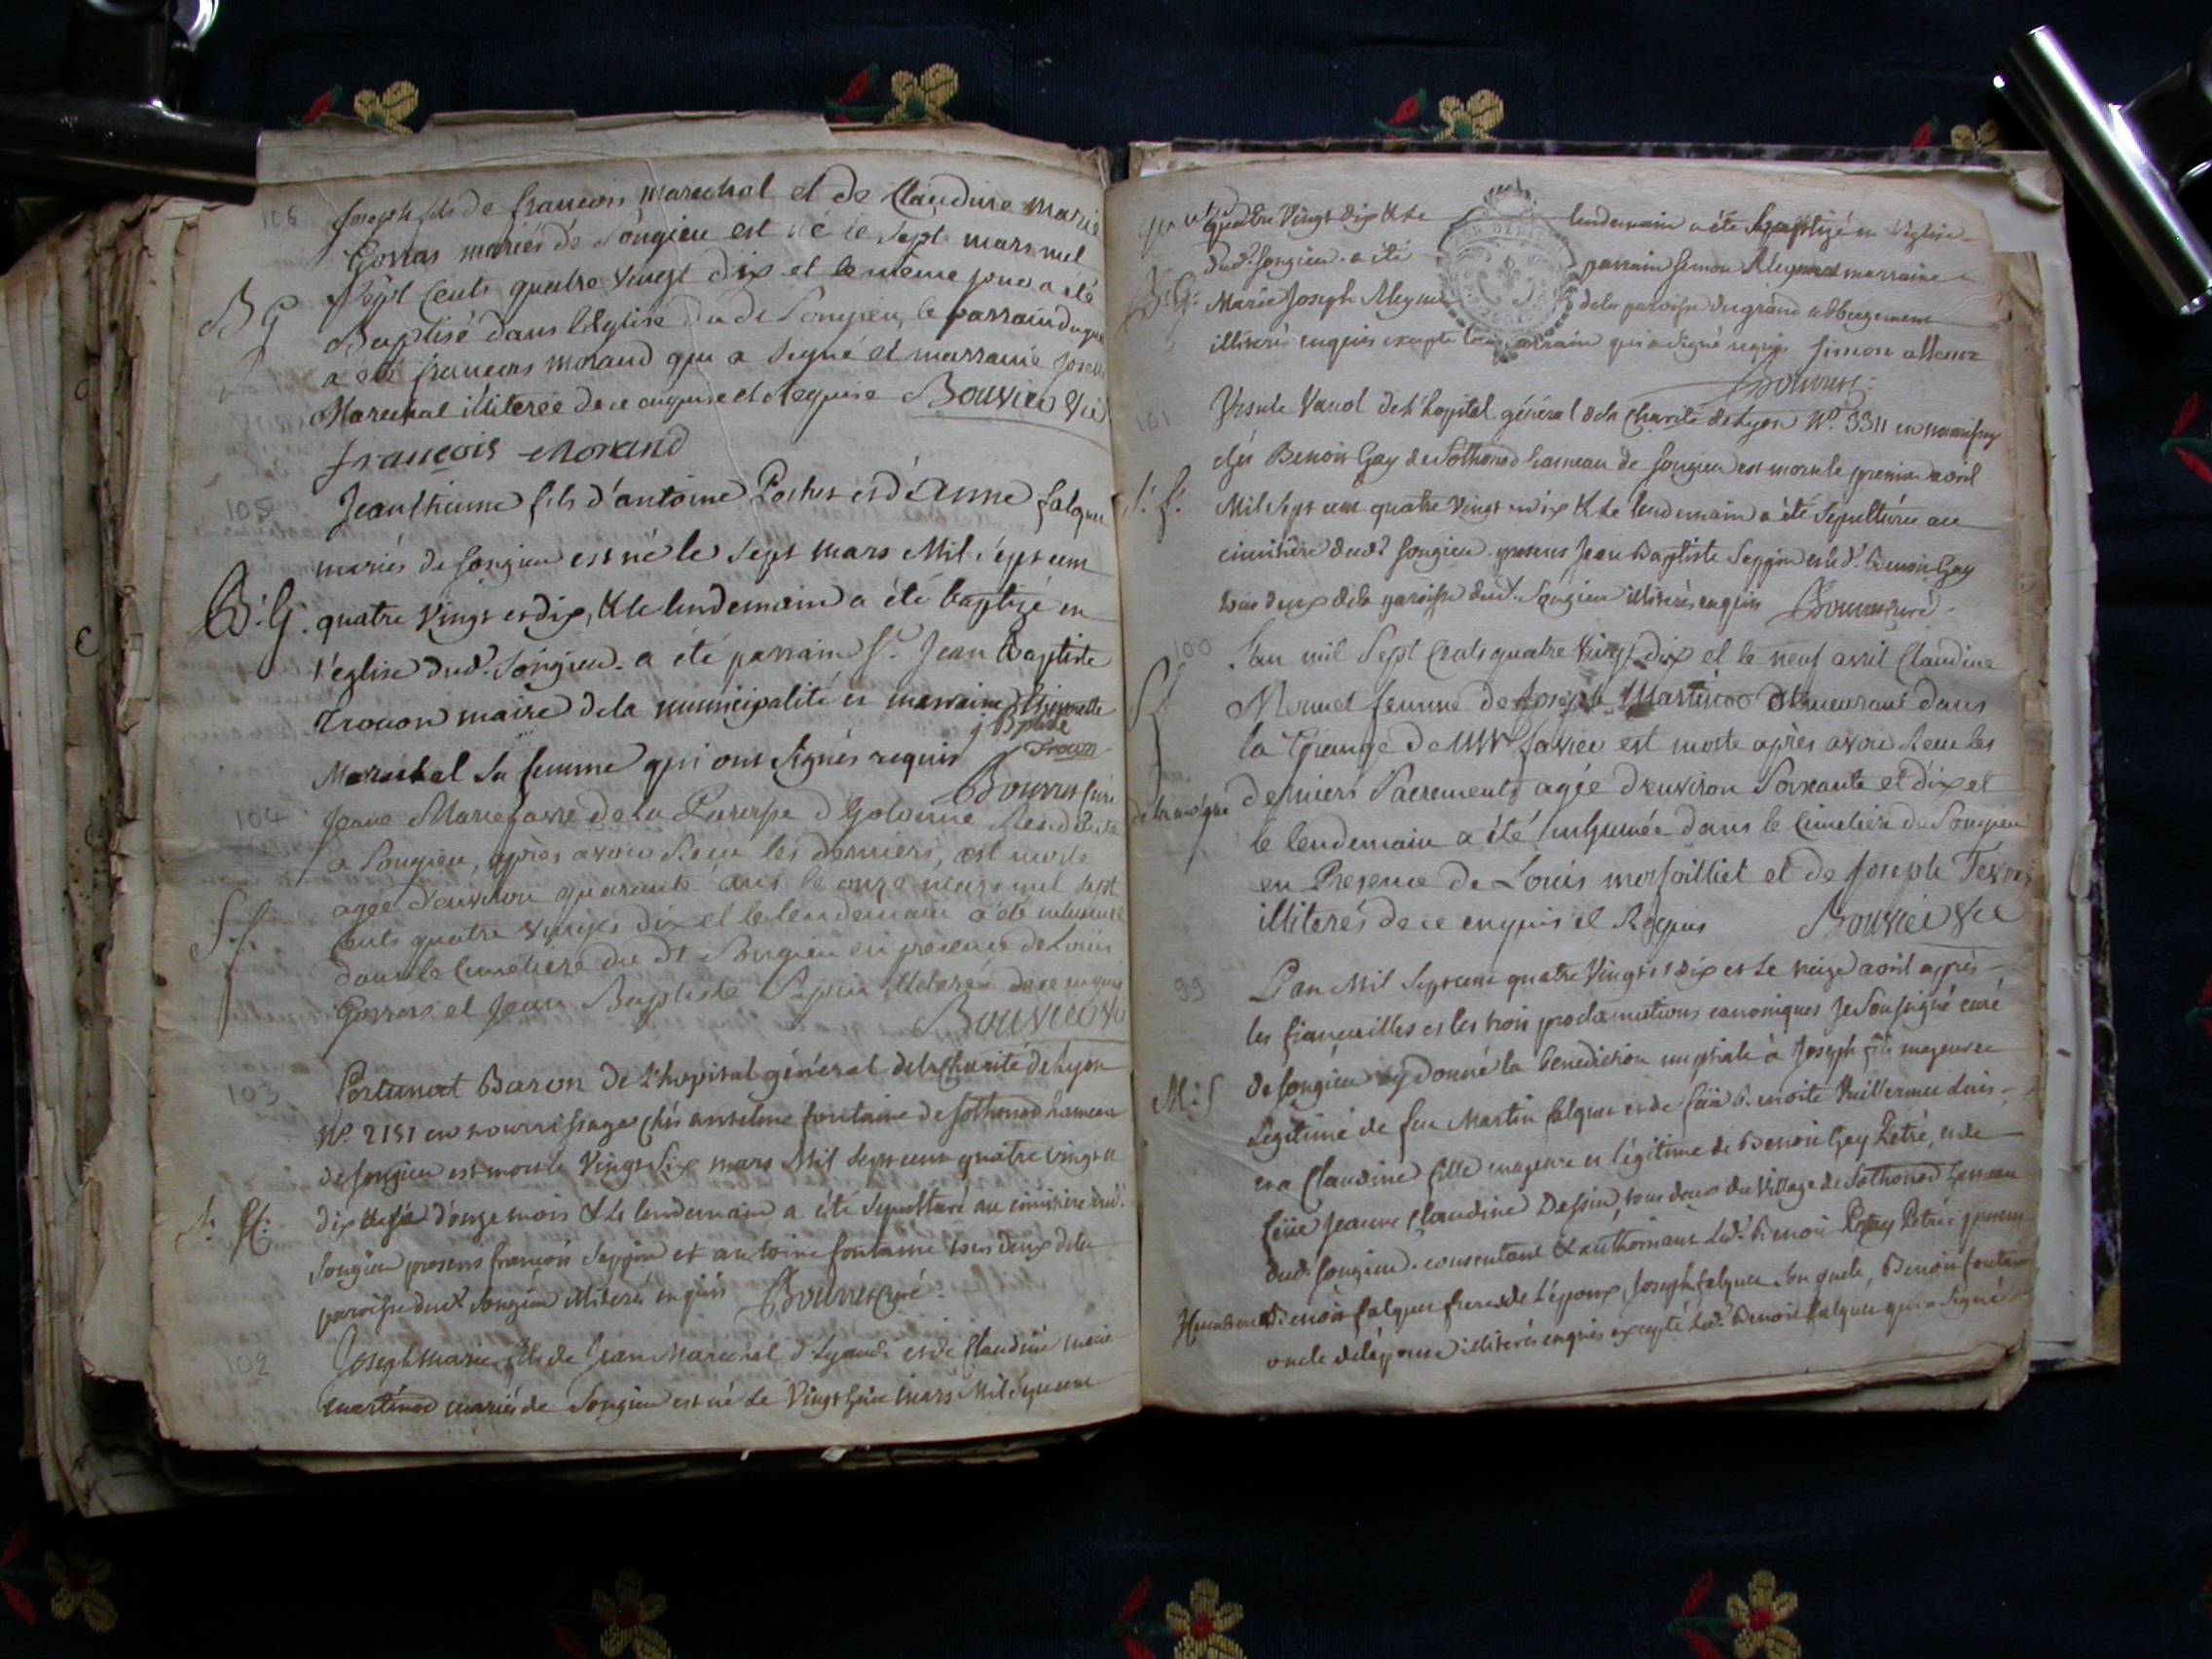 106
Joseph fils de françois Marechal et de Claudine Marie
Gorras mariés de Songieu est né le sept mars mil
Sept Cents quatre vingt dix et le même jour a été
B G
Baptisé dans l'Eglise du dt Songieu, le parrain
a été françois morand qui a signé et marraine
Marechal illiterée de ce enquise et Requise Bouvier Vic
françois Morand
105
Jeanthieme fils d'antoine Pochet et d'Anne falque
mariés de Songieu est né le Sept mars Mil Sept cent
B: G.
quatre Vingt et dix, & le lendemain a été baptizé en
l'église dud. Songieu. a été parrain Sr. Jean Baptiste
Trocon maire dela municipalité et marraine thiennette
j Bptiste
Trocon
Marechal sa femme qui ont Signés requis
Curé
104
Jeane Marie favre de la Paroisse d'
a Songieu, après avoir Reçu les derniers, est morte
agée d'environ quarante ans le onze mars mil sept
S. f.
Cents quatre vingts dix et le lendemain a été inhumée
dans le Cimetiere du dt Songieu en presence de Louis
Gorras et Jean Baptiste Seppin illiterés de ce enquis
Bouvier Vic
103
Fortunat Baron de l'hopital général dela Charité de Lyon
No. 2151 en nourrissage chés anselme fontaine de Sothonod hameau
de Songieu est mort le Vingt Six mars Mil Sept cent quatre vingt et
dix d'onze mois & le lendemain a été Sepulturé au cimitiere dud.
Songieu presens françois Seppin et antoine fontaine tous deux dela
paroisse dud. Songieu illiterés enquis Curé
102
Joseph marie fils de Jean Marechal et de Claudine marie
martinod mariés de Songieu est né le Vingt huit mars Mil Sept cent
quatre Vingt dix & le lendemain a été baptizé en l'église
dud. Songieu. a été parrain Simon marraine
B: G:
Marie Joseph dela paroisse du grand abbergement
illiterés enquis excepté parrain qui a signé requis Simon
101
Ursule Vanod de l'hopital général dela Charité de Lyon No. 3311 en nourrissage
chés Benoit Gay de Sothonod hameau de Songieu est morte le premier avril
S: f:
Mil Sept cent quatre Vingt et dix & le lendemain a été Sepulturée au
cimitiere dud. Songieu. presens Jean Baptiste Seppin et led. Benoit Gay
tous deux dela paroisse dud. Songieu illiterés enquis Curé
100
L'an mil Sept Cents quatre Vingt dix et le neuf avril Claudine
femme de Joseph Martinod demeurant dans
la Grange de Mr favier est morte après avoir Reçu les
derniers Sacrements agée d'environ Soixante et dix et
le lendemain a été inhumée dans le Cimetiere de Songieu
en Presence de Louis et de Joseph
illiterés de ce enquis et Requis Bouvier Vic
99
L'an Mil Sept cent quatre Vingt et dix et le treize avril après
les fiançailles et les trois proclamations canoniques Je Soussigné curé
de Songieu ay donné la benediction nuptiale à Joseph fils majeur et
M: f
Légitime de feu Martin falque et de feüe Benoite Vuillermet
et a Claudine fille majeure et légitime de Benoit Gay Pétré, et de
feüe Jeanne Claudine Dessin, tous deux du Village de Sothonod hameau
dud. Songieu. consentant & authorisant led. Benoit Gay Pétré presens
Benoit falque frere de l'époux, Joseph falque Son oncle, Benoit fontaine
oncle de l'épouse illiterés enquis excepté led. Benoit falque qui a Signé